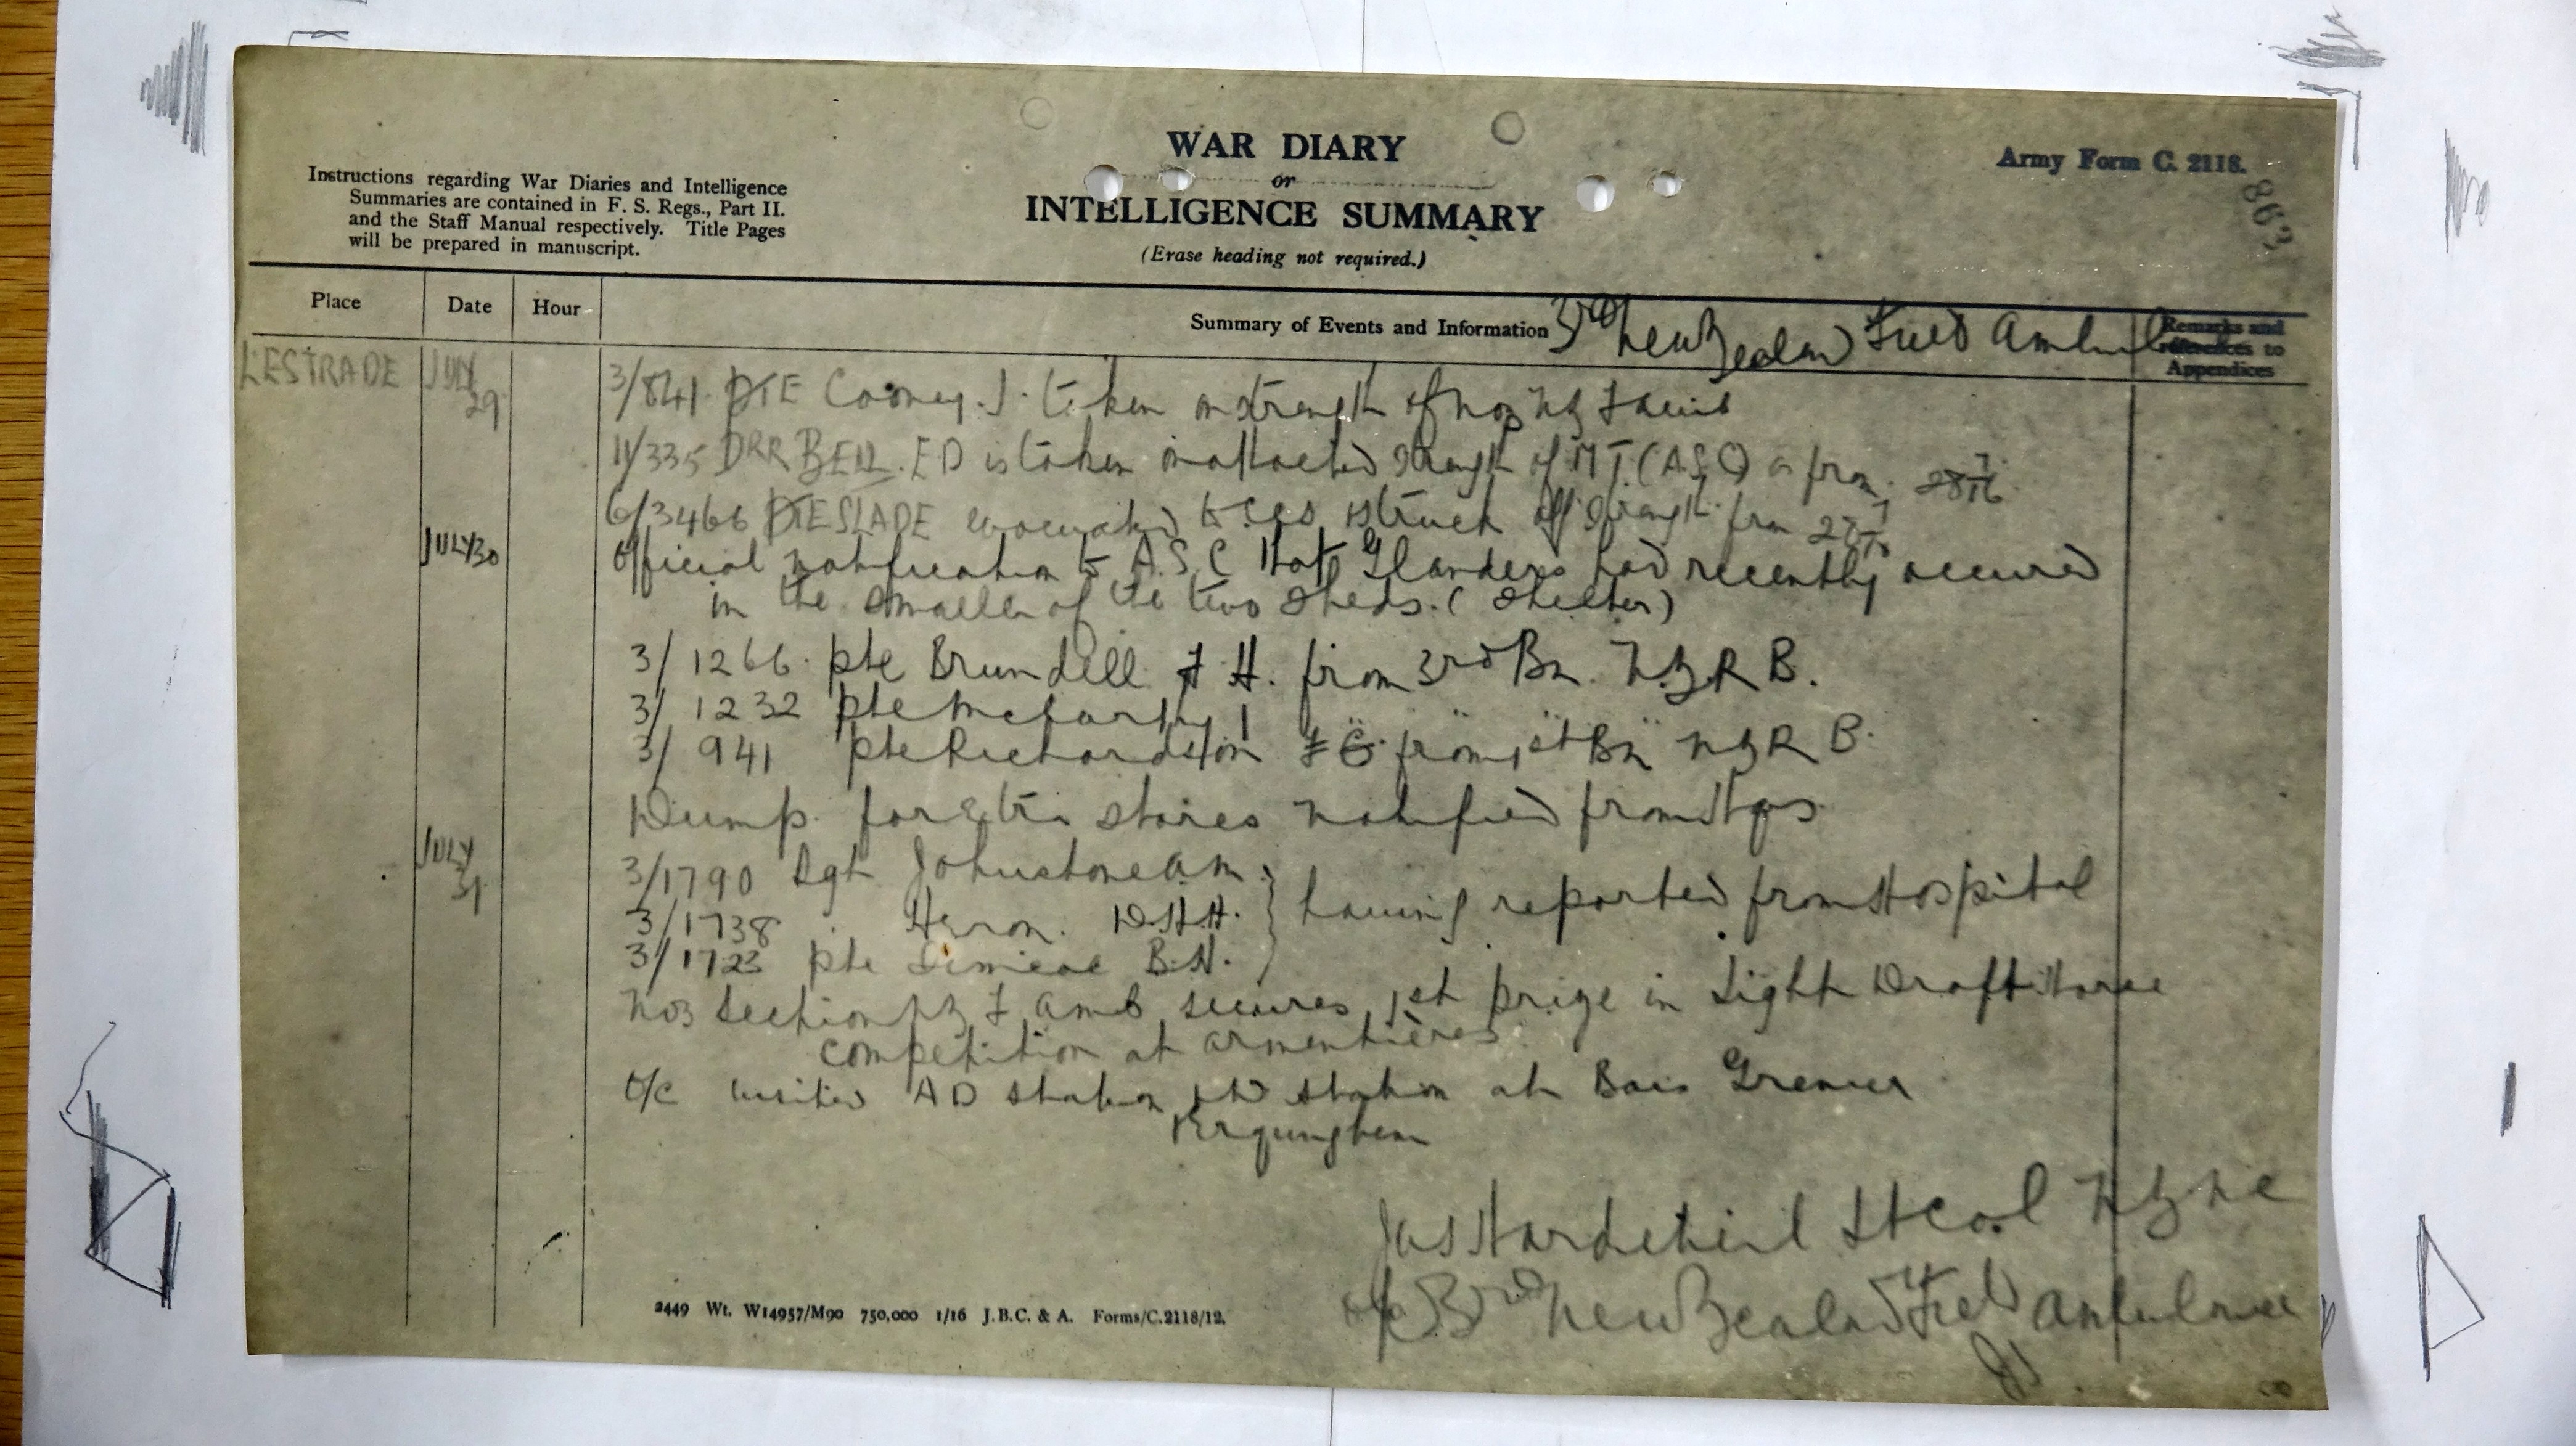 WAR DIARY
or
INTELLIGENCE SUMMARY
(Erase heading not required.)
Army Form C. 2118.
Instructions regarding War Diaries and Intelligence
Summaries are contained in F. S. Regs., Part II.
and the Staff Manual respectively. Title Pages
will be prepared in manuscript.
863
Place
Date
Hour
Summary of Events and Information
3rd New Zealand Field Ambulance
Remarks and
references to
Appendices
LESTRADE
JULY
29
3/841 PTE Cooney. J. taken on strength of No 3 NZ F Amb
11/335 DRR BELL. E D is taken on attached strength of MT (ASC) as from 28/7/16
6/3466 PTE SLADE evacuated to CCS struck off strength from 27/7/16
JULY 30
Official notification to A.S.C that Glanders had recently occured
in the smaller of the two sheds. (Shelter)
3/ 1266 Pte Brundell F H. from 3rd Bn. N.Z R B.
3/ 1232 Pte McCarthy
3/ 941 Pte Richardson F C. from 1st Bn N Z R B.
Dump for Extra stores notified from Hqs
JULY
31
3/1790 Sgt Johnstone A M
3/1738 Heron. D.H.H.
3/1723 Pte B.H.
having reported from Hospital
No3 Section NZ F Amb secures 1st prize in Light Draft Horse
competition at Armentières
O/C visited AD station station at Bois Grenier
Erquinghem
Jas Hardie Neil Lt Col NZMC
O/C 3rd New Zealand Field Ambulance
2449 Wt. W14957/M90 750,000 1/16 J.B.C. & A. Forms/C.2118/12.